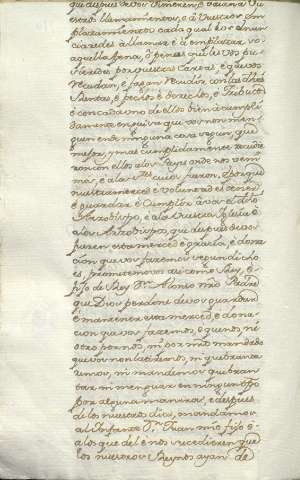 que despues de vos vinieren, é vala en Vu
estro llamamiento, o á Vuestro em
plazamiento cada qual los denun
ciaredes á llamar é á emplazar so
aquella pena, ó penas que les vos pu
sieredes por vuestra Carta é que vos
recudan, é fagan recudir con las dhas
Rentas, é pechos é derechos, é Tributos
é con cada uno de ellos bien é cumpli
damente en guisa que vos non men
guen ende ninguna cosa segun, que
mejor, y mas cumplidamente recudie
ron con ellos a los Reyes onde nos veni
mos, é a las cuios fueron. Por que
nuestra merced é voluntad es tener
é guardar é cumplir á vos el dho
Arzobispo, é a la Vuestra Iglesia é
a los Arzobispos que despues de vos
fueren esta merced é gracia é dona
cion que vos facemos segun dicho
es, prometemos asi como Rey, é
fijo de Rey Dn. Alonso mio Padre
que Dios perdone de vos guardar
é mantener esta merced, é dona
cion que vos facemos, é que nos, nin
otro por nos, ni por mio mandado
que vos non la tiremos, ni quebranta
remos, ni mandemos quebran
tar ni menguar en ningun tpo
por alguna manera, é despues
de los nuestros dias, mandamos
al Infante Dn. Juan mio fijo é
a los que del é nos sucedieren que
los nuestros Reynos ayan de